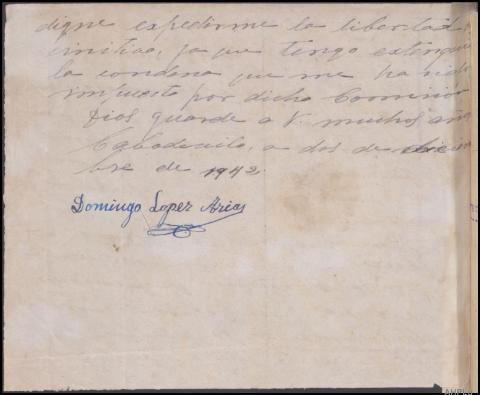 digne expedirme la libertad
finitiva, ya que tengo extingui
la condena que me ha sido
impuesta por dicha Comision
Dios guarde a V. muchos años
a dos de diciem
bre de 1942.
Domingo Lopez Arias